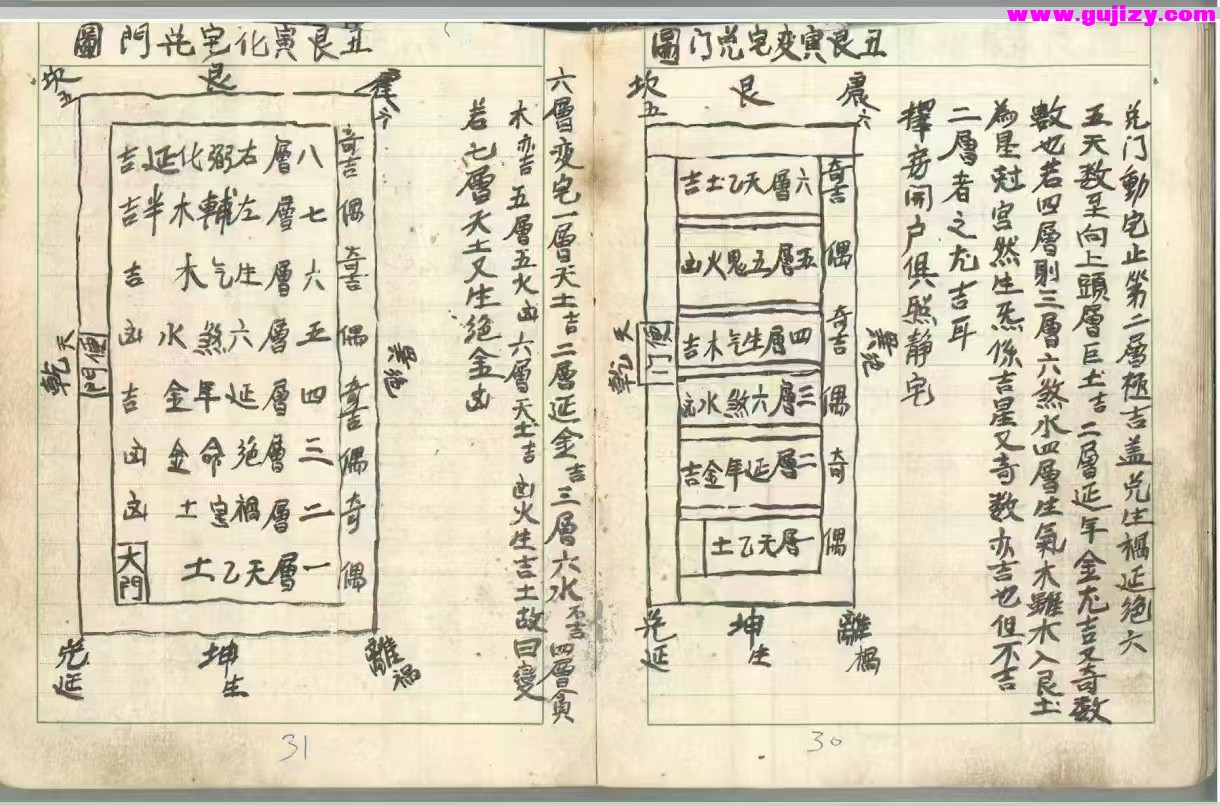 www.gujizy.com
丑艮寅变宅兑门圖
兑门動宅止第二層極吉盖兑生禍延絶六
五天数至向上頭層巨土吉二層延年金尤吉又奇数
數也若四層則三層六煞水四層生氣木雖木入艮土
為星尅宮然生炁係吉星又奇数亦吉也但不吉
二層者之尤吉耳
擇房開户俱照静宅
坎五
艮
震六
奇吉
六層天乙土吉
偶
五層五鬼火凶
奇吉
四層生气木吉
偶
三層六煞水凶
奇
二層延年金吉
偶
一層天乙土
便门
天乾
巽絶
兑延
坤生
離禍
30
六層变宅一層天土吉二層延金吉三層六水不吉四層貪
木亦吉五層五火凶六層天土吉凶火生吉土故曰變
若七層天土又生絶金凶
丑艮寅化宅兑門圖
坎五
艮
震六
奇吉
八層右弼化延吉
偶
七層左輔木半吉
奇吉
六層生气木吉
偶
五層六煞水凶
奇吉
四層延年金吉
偶
三層絶命金凶
奇
二層禍害土凶
偶
一層天乙土
大門
便門
天乾
巽絶
兑延
坤生
離禍
31